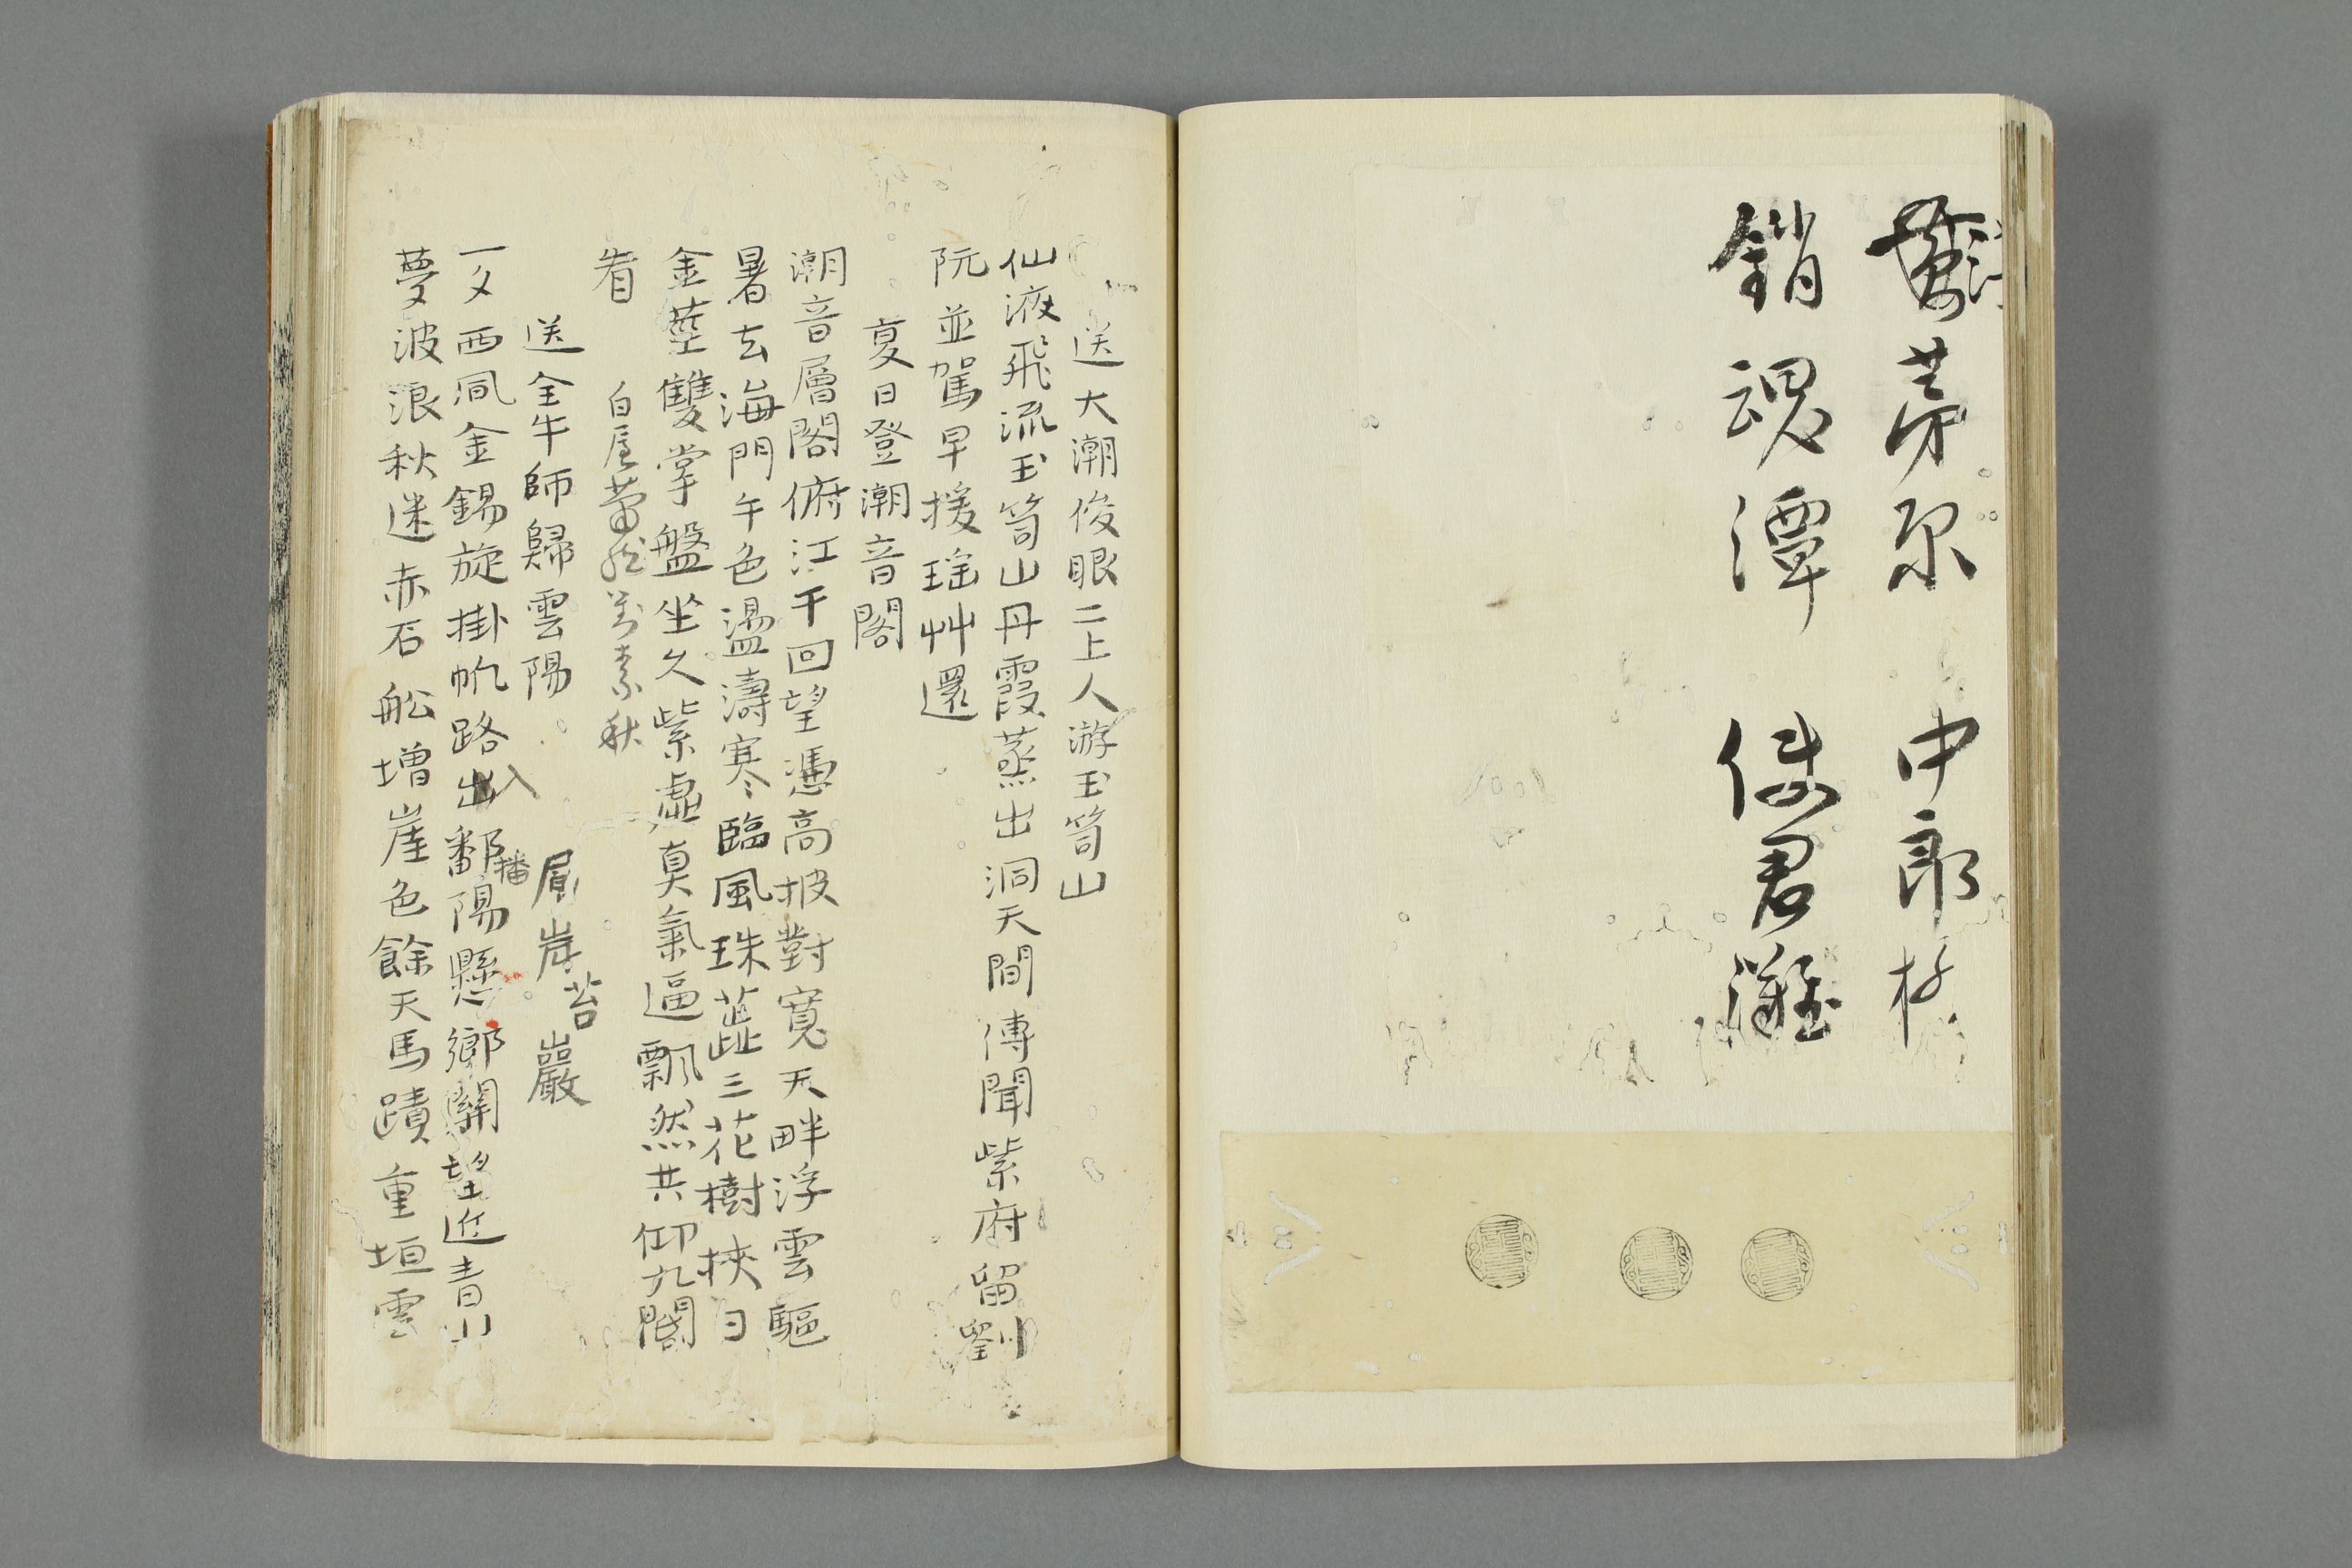 茅 中郎
銷魂潭 使君灘
送大潮俊眼二上人游玉笥山
仙液飛流玉笥山丹霞蒸出洞天間傳聞紫府留劉
阮並駕早援瑶艸還
夏日登潮音閣
潮音層閣俯江干回望憑高披對寬天畔浮雲驅
暑去海門午色盪濤寒臨風珠蕋三花樹挾日
金莖雙掌盤坐久紫虛真氣逼飄然共仰九閽
看
白 素秋
送全牛師歸雲陽
崖岸 苔 巖
入
播
一夕西風金錫旋掛帆路出鄱陽縣鄉關望近青山
夢波浪秋迷赤石舩增崖色餘天馬蹟重垣雲